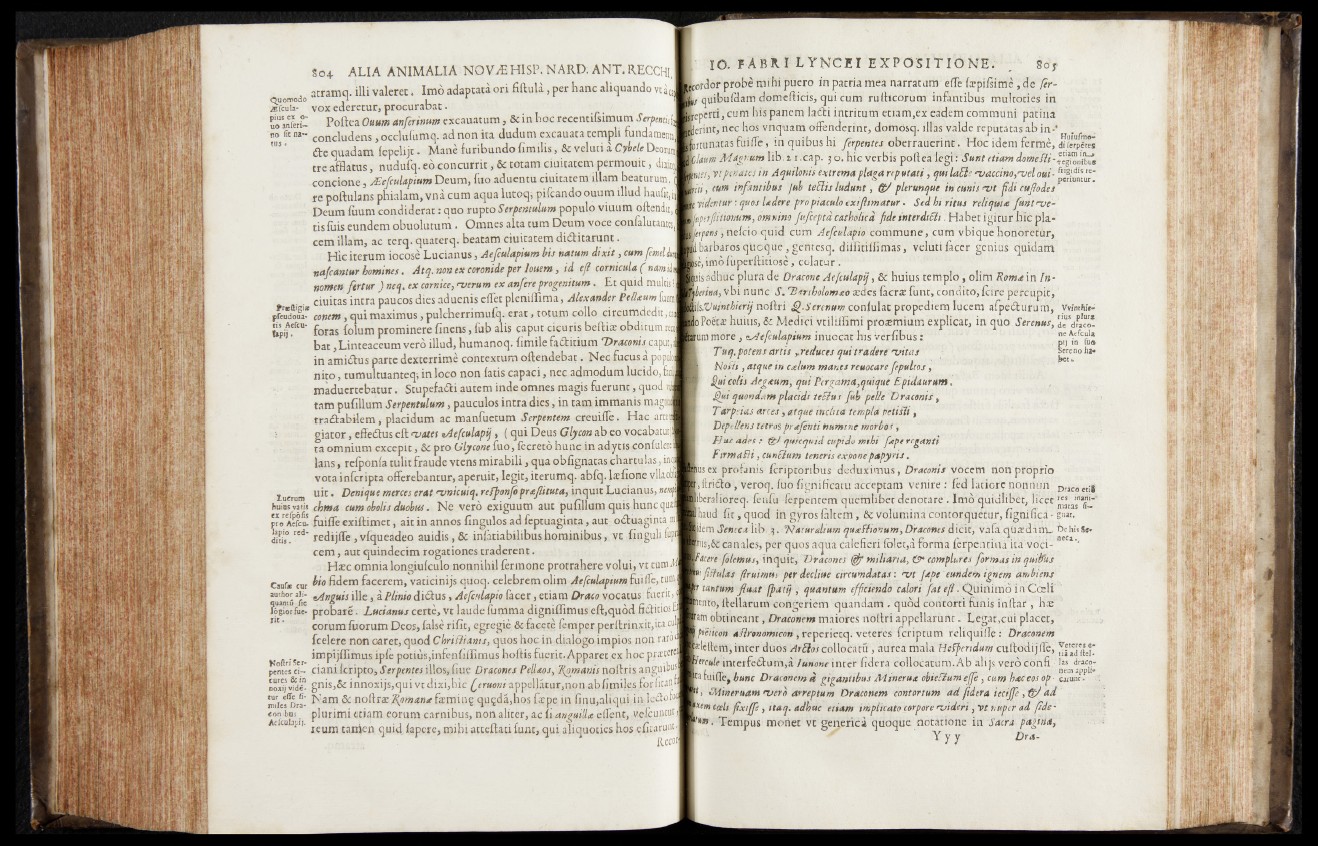 804 ALIA ANIMALIA NOVÆ HISP. NARD. ANT. RECCHI
atramq. illi valeret. Imò adaptatà ori fistulà, per hanc aliquando vt à
vox ederetur, procurabat.
Postea Ouum anserinum excauatum, & in hoc recentissimum Serpentis
concludens, occlusumq. ad non ita dudum excauata templi fundamenta
cte quadam sepelijt. Manè furibundo similis, & veluti à Cybele Deorum
tre afflatus, nudusq. eò concurrit, & totam ciuitatem permouit,
concione, Æsculapium Deum, suo aduentu ciuitatem illam beaturum.
re postulans phialam, vnà cum aqua lutoq; piscando ouum illud hausit,
Deum suum condiderat: quo rupto Serpentulum populo viuum ostendit,
tis suis eundem obuolutum. Omnes alta tum Deum voce consalutantes,
cem illam, ac terq. quaterq. beatam ciuitatem dictitarunt.
Hic iterum iocosè Lucianus, Aesculapium bis natum dixit, cum semel
nascantur homines. Atq. non ex coronide per Iouem, id est cornicula (nam
nomen fertur) neq. ex cornice, verum ex ansere progenitum. Et quid multis
ciuitas intra paucos dies aduenis esset plenissima, Alexander Pellæum suum
conem, qui maximus, pulcherrimusq. erat, totum collo circumdedit,
foras solum prominere sinens, sub alis caput cicuris bestiæ obditum
bat, Linteaceum verò illud, humanoq. simile factitium Draconis caput,
in amictus parte dexterrimè contextum ostendebat. Nec fucus à populo
nito, tumultuanteq; in loco non satis capaci, nec admodum lucido,
maduertebatur. Stupefacti autem inde omnes magis fuerunt, quod
tam pusillum Serpentulum, pauculos intra dies, in tam immanis
tractabilem, placidum ac mansuetum Serpentem creuisse. Hac
giator, effectus est vates Aesculapij, (qui Deus Glycon ab eo vocabatur)
ta omnium excepit, & pro Glycone suo, secretò hunc in adytis
lans, responsa tulit fraude vtens mirabili, qua obsignatas chartulas,
vota inscripta offerebantur, aperuit, legit, iterumq. absq. læsione vlla
uit. Denique merces erat vnicuiq. responso præstituta, inquit Lucianus,
chma cum obolis duobus. Ne verò exiguum aut pusillum quis hunc
fuisse existimet, ait in annos singulos ad septuaginta, aut octuaginta
redijsse, vsqueadeo auidis, & insatiabilibus hominibus, vt singuli
cem, aut quindecim rogationes traderent.
Hæc omnia longiusculo nonnihil sermone protrahere volui, vt cum
bio fidem facerem, vaticinijs quoq. celebrem olim Aesculapium fuisse,
Anguis ille, à Plinio dictus, Aesculapio sacer, etiam Draco vocatus fuerit,
probarè. Lucianus certè, vt laude summa dignissimus est, quòd fictitios
corum suorum Deos, salsè risit, egregiè & facetè semper perstrinxit, ita
scelere non caret, quod Christianis, quos hoc in dialogo impios non rarò
impijssimus ipse potiùs, infensissimus hostis fuerit. Apparet ex hoc
ciani scripto, Serpentes illos, siue Dracones Pellæos, Romanis nostris anguibus
gnis, & innoxijs, qui vt dixi, hic Ceruoni appellatur, non absimiles
Nam & nostræ Romanæ fæminę quędā, hos sæpe in sinu, aliqui in
plurimi etiam eorum carnibus, non aliter, ac si anguillæ essent, vescuntur,
reum tamen quid sapere, mihi attestati sunt, qui aliquoties hos
Quomodo
Æscula-
pius ex o-
uo anseri-
no sit na-
tus.
Præstigiæ
pseudoua-
tis Aescu-
lapij.
Lucrum
huius vatis
ex respōsis
pro Aescu-
lapio red-
ditis.
Causæ cur
author ali-
quamū sit
lōgior fue-
rit.
Nostri Ser-
pentes ci-
cures & in
noxij vidē-
tur esse si-
miles Dra-
conibus
Aesculapij.
IO. FABRI LYNCEI EXPOSITIONE. 805
cordor probè mihi puero in patria mea narratum esse sæpissimè, de ser-
quibusdam domesticis, qui cum rusticorum infantibus multoties in
reperti, cum his panem lacti intritum etiam, ex eadem communi patina
derint, nec hos vnquam offenderint, domosq. illas valde reputatas ab in-
fortunatas fuisse, in quibus hi serpentes oberrauerint. Hoc idem fermè,
Olaum Magnum lib. 21. cap. 30. hic verbis postea legi: Sunt etiam domesti-
vt penates in Aquilonis extrema plaga reputati, qui lacte vaccino, vel oui-
, cum infantibus sub tectis ludunt, & plerunque in cunis vt fidi custodes
videntur: quos lædere pro piaculo existimatur. Sed hi ritus reliquiæ sunt ve-
superstitionum, omnino suscepta catholica fide interdicti. Habet igitur hic pla-
serpens, nescio quid cum Aesculapio commune, cum vbique honoretur,
barbaros quoque, gentesq. dissitissimas, veluti sacer genius quidam
, imò superstitiosè, colatur.
adhuc plura de Dracone Aesculapij, & huius templo, olim Romæ in In-
, vbi nunc S. Bartholomæo ædes sacræ sunt, condito, scire percupit,
Vuinthierij nostri Q. Serenum consulat propediem lucem aspecturum,
Poëtæ huius, & Medici vtilissimi proæmium explicat, in quo Serenus,
more, Aesculapium inuocat his versibus:
Tuq. potens artis, reduces qui tradere vitas
Nosti, atque in cælum manes reuocare sepultos,
Qui colis Aegæum, qui Pergama, quique Epidaurum,
Qui quondam placidi tectus sub pelle Draconis,
Tarpeias arces, atque inclita templa petisti,
Depellens tetros præsenti numine morbos,
Huc ades: & quicquid cupido mihi sæpe roganti
Firmasti, cunctum teneris expone papyris.
ex profanis scriptoribus deduximus, Draconis vocem non proprio
, stricto, veroq. suo significatu acceptam venire: sed latiore nonnun
liberalioreq. sensu serpentem quemlibet denotare. Imò quidlibet, licet
haud sit, quod in gyros saltem, & volumina contorquetur, significa-
item Seneca lib. 3. Naturalium quæstionum, Dracones dicit, vasa quædam
, & canales, per quos aqua calefieri solet, à forma serpentina ita voci-
Facere solemus, inquit, Dracones & miliaria, & complures formas in quibus
fistulas struimus per decliue circumdatas: vt sæpe eundem ignem ambiens
tantum fluat spatij, quantum efficiendo calori sat est. Quinimò in Cœli
, stellarum congeriem quandam. quòd contorti funis instar, hæ
obtineant, Draconem maiores nostri appellarunt. Legat, cui placet,
poëticon astronomicon, reperietq. veteres scriptum reliquisse: Draconem
cælestem, inter duos Arctos collocatū, aurea mala Hesperidum custodijsse,
Hercule interfectum, à Iunone inter sidera collocatum. Ab alijs verò confi
fuisse, hunc Draconem à gigantibus Mineruæ obiectum esse, cum hæc eos op-
, Mineruam verò arreptum Draconem contortum ad sidera iecisse, & ad
cæli fixisse, itaq. adhuc etiam implicato corpore videri, vt nuper ad side-
. Tempus monet vt genericà quoque notatione in Sacra pagina,
Yyy Dra-
Huiusmo-
di serpētes
etiam in
regionibus
frigidis re-
periuntur.
Vuinthie-
rius plura
de draco-
ne Aescula
pij in suo
Sereno ha-
bet.
Draco etiā
res inani-
matas si-
gnat.
De his Se-
neca.
Veteres e-
tiā ad stel-
las draco-
nem appli-
carunt.